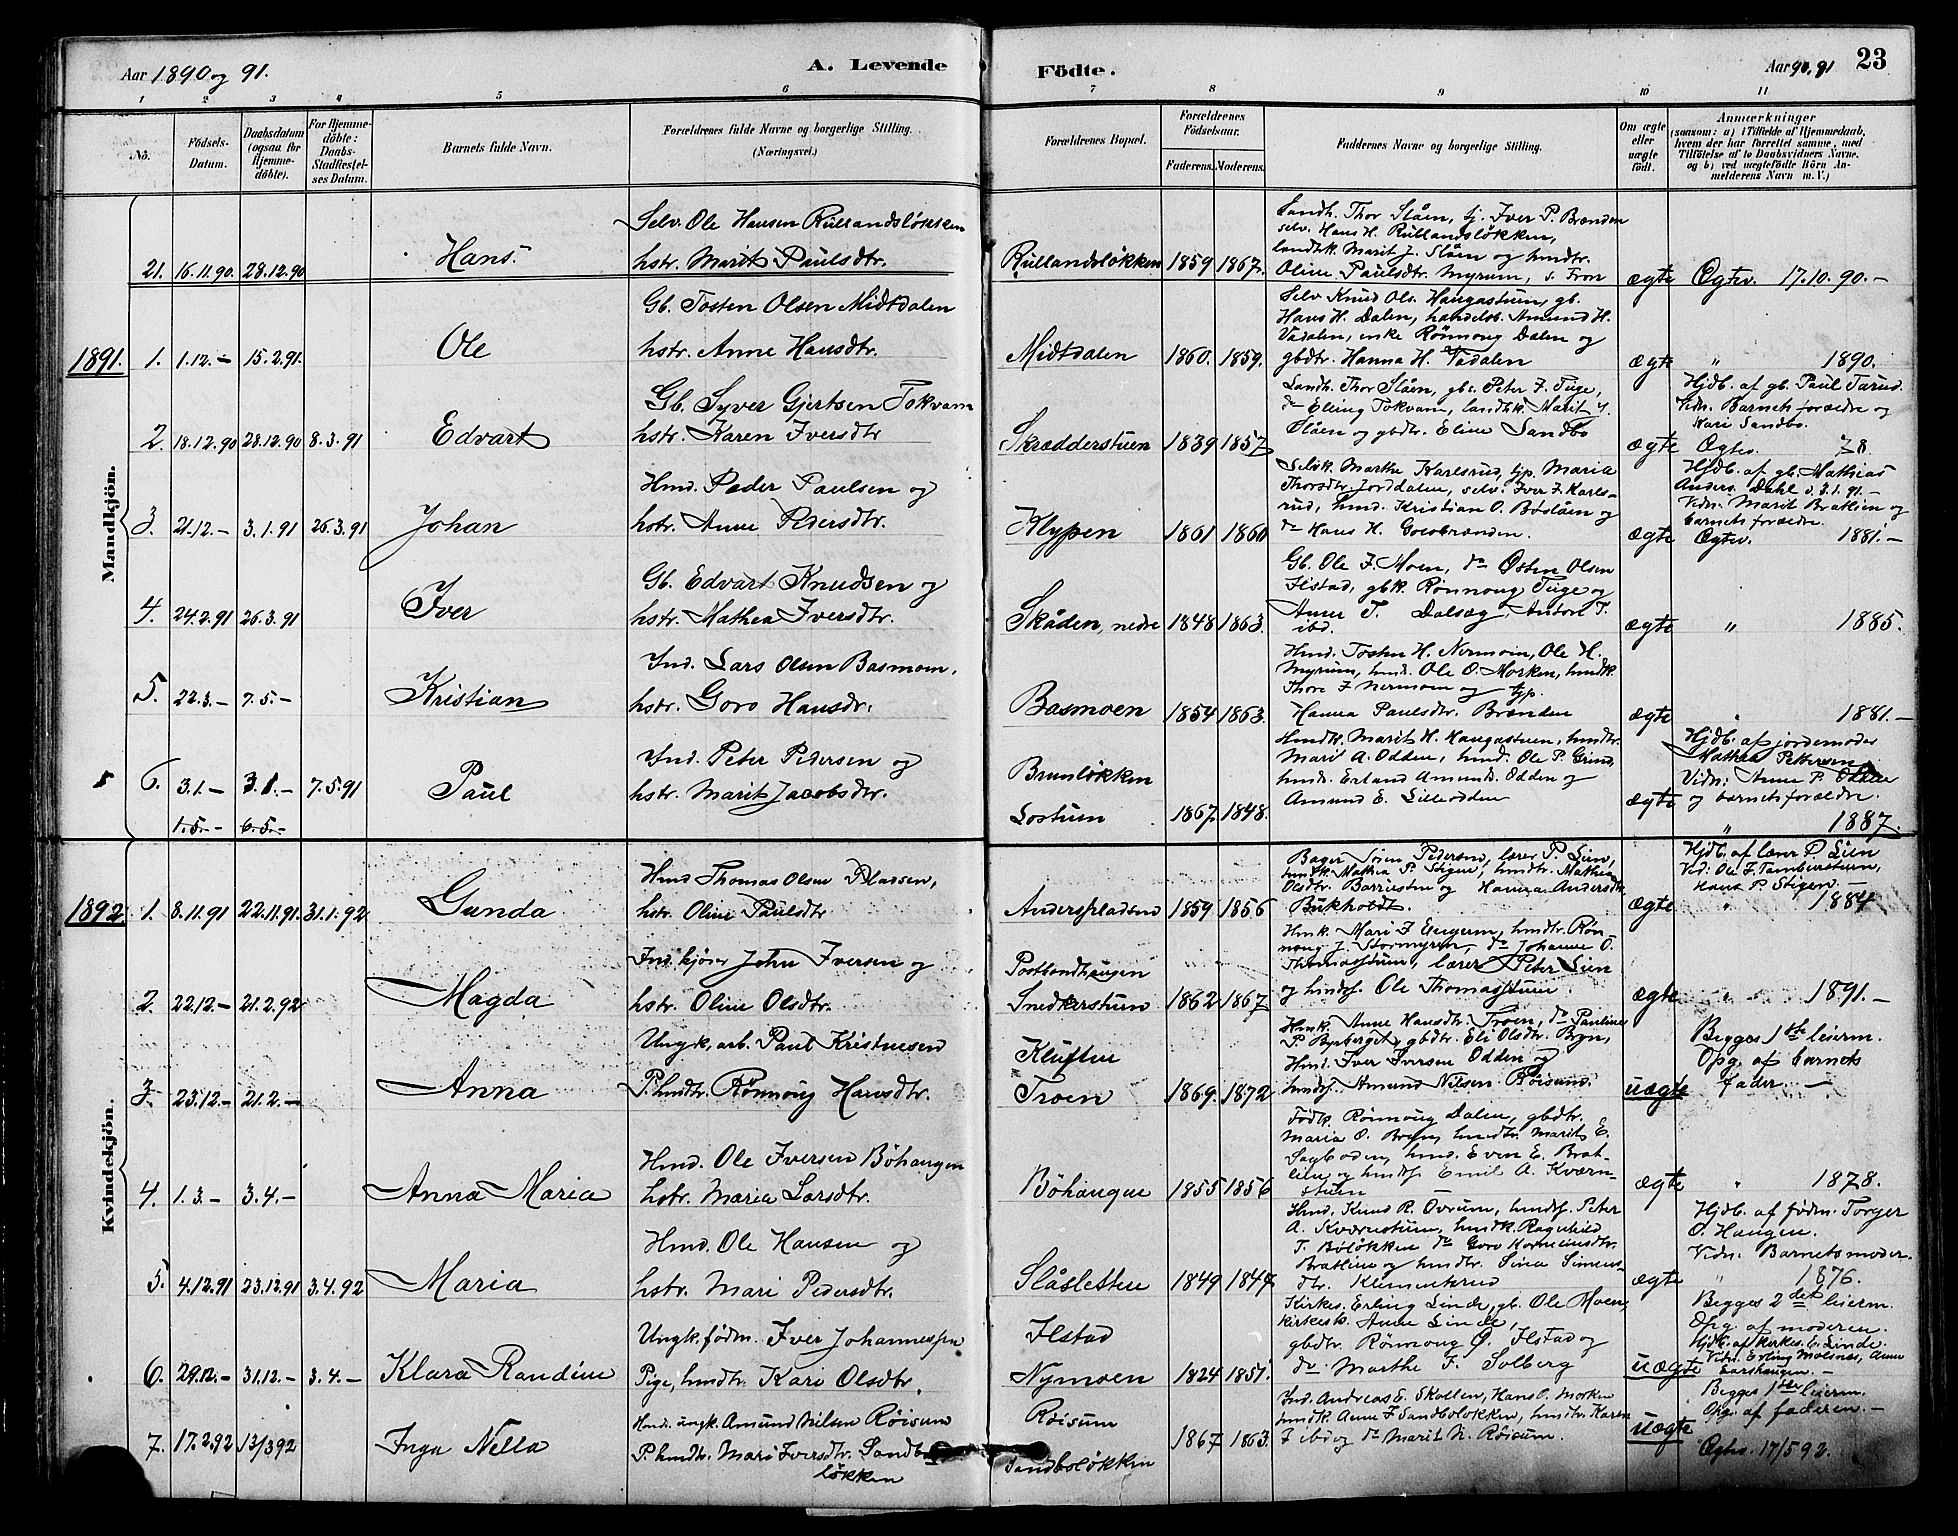 Aar 1890 og 91.
A. Levende
Födte.
Aar 90, 91
23
1 2 3 4 5 6 7 8 9 10 11
No.
Födsels-
Datum.
Daabsdatum
(ogsaa for
Hjemme-
döbte).
For Hjemme-
döbte:
Daabs-
Stadfæstel-
ses Datum.
Barnets fulde Navn.
Forældrenes fulde Navne og borgerlige Stilling.
(Næringsvei.)
Forældrenes Bopæl.
Forældrenes
Födselsaar.
Faderens. Moderens.
Faddernes Navne og borgerlige Stilling.
Om ægte
eller
uægte
födt.
Anmærkninger
(saasom: a) i Tilfælde af Hjemmedaab,
hvem der har forrettet samme, med
Tilföielse af to Daabsvidners Navne,
og b) ved uægtefödte Börn An-
melderens Navn m. V.)
Selv. Ole Hansen Rullandsløkken
hstr. Marit Paulsdtr.
21. 16.11.90. 28.12.90 Hans. Rullandsløkken 1859 1867.
Landh. Thor Slåen, tj. Iver P. Brænden
selv. Hans H. Rullandsløkken,
landhk. Marit J. Slåen og hmdtr.
Oline Paulsdtr. Myrum, s. Fron
ægte Ogtev. 17.10.90.–
Mandkjön.
1891. 1. 1.12.– 15.2.91. Ole
Gb. Tosten Olsen Midtdalen
hstr. Anne Hansdtr.
Midtdalen 1860. 1859.
Selv Knud Ols. Haugastuen, gb.
Hans H. Dalen, handelsb. Amund H.
Vadalen, enke Rønnoug Dalen og
gbdtr. Hanna H. Vadalen
ægte " 1890.
2. 18.12.90 28.12.90 8.3.91 Edvart
Gb. Syver Gjertsen Tokvam
hstr. Karen Iversdtr
Skrædderstuen 1839 1857
Landh. Thor Slåen, gb. Peter J. Tuge,
do Elling Tokvam, landhk. Marit J.
Slåen og gbdtr. Eline Sandbo
ægte
Hjdb. af gb. Paul Tarud.
Vidn. Barnets forældre og
Kari Sandbo.
Ogtev. 78
3. 21.12.– 3.1.91 26.3.91 Johan
Hmd. Peder Paulsen og
hstr. Anne Pedersdtr.
Klypen 1861 1860
Selvk. Marthe Karlsrud, tjp. Maria
Thorsdtr. Jorddalen, selv. Iver J. Karls-
rud, hmd. Kristian O. Böslåen og
do Hans H. Golobrænden.
ægte
Hjdb. af gb. Mathias
Anders. Dahl d. 3.1.91.–
Vidn: Marit Bratlien og
barnets forældre.
Ogtev. 1881.–
4. 24.2.91 26.3.91 Iver
Gb. Edvart Knudsen og
hstr. Mathea Iversdtr.
Skåden, nedre 1848 1863.
Gb. Ole J. Moen, do Østen Olsen
Ilstad, gbk. Rønnoug Tuge og
Anne T. Dalseg, Anton T.
ibd.
ægte " 1885.
5. 22.3.– 7.5.– Kristian
Ind. Lars Olsen Basmoen.
hstr. Goro Hansdr.
Basmoen 1854 1863.
Hmd. Tosten H. Nermoen, Ole H.
Myrum, hmd. Ole O. Morken, hmdk.
Thore J. Nermoen og tjp.
Hanna Paulsdtr. Brænden
ægte " 1881.–
6. 3.1.– 3.1.– 7.5.91 Paul
1.5.– 6.5.–
Ind. Peter Pedersen og
hstr. Marit Jacobsdtr.
Brunløkken
Lostuen 1867. 1848.
Hmdk. Marit H. Haugastuen, hmdtr.
Marit A. Odden, hmd. Ole P. Grind,
hmd. Erland Amunds. Odden og
Amund E. Lilleodden
ægte
Hjdb. af jordemoder
Mathea Pettersen
Vidn: Anne P. Odden
og barnets forældre.
" 1887.
Kvindekjön.
1892 1. 8.11.91 22.11.91. 31.1.92 Gunda
Hmd Thomas Olsen Pladsen,
hstr. Oline Paulsdtr
Anderspladsen 1859 1856
Bager Søren Pedersen, lærer P. Lien,
hmdk. Mathea P. Stigen, hmdtr. Mathea
Olsdtr. Barriusten og Hanna Andersdtr
Bukholdt.
ægte
Hjdb. af lærer P. Lien
Vid: Ole J. Tamburstuen,
Hans P. Stigen
" 1884
2. 22.12.– 21.2.92 Magda
Ind. kjører John Iversen og
hstr. Oline Olsdtr.
Postbondhaugen
Snedkerstuen 1862 1867
Hmk. Mari J Engum, hmdtr. Røn-
noug J. Stormyren, do Johanne O.
Thomasstuen, lærer Peter Lien
og hmdsf. Ole Thomasstuen
ægte " 1891.–
3. 23.12.– 21.2.– Anna
Ungk. arb. Paul Kristensen
P. hmdtr. Rønnoug Hansdtr.
Kluften
Troen 1869. 1872
Hmk. Anne Hansdtr. Troen, do Pauline
P. Byberget, gbdtr. Eli Olsdtr. Bryn,
Hmd. Iver Iversen Odden og
hmdsf. Amund Nilsen Røisum.
uægte
Begges 1ste leierm.
Opg. af barnets
fader. –
4. 1.3.– 3.4.– Anna Maria
Hmd. Ole Iversen Böhaugen
hstr. Maria Larsdtr.
Böhaugen 1855 1856
Födk. Rønnoug Dalen, gbdtr.
Maria O. Bryn, hmdtr. Marit E.
Sagboden, hmd. Even E. Brat-
lien og hmdsf. Emil A. Kværn-
stuen
ægte " 1878.
5. 4.12.91 23.12.91 3.4.92 Maria
Hmd. Ole Hansen og
hstr. Mari Pedersdtr.
Slåsletten 1849 1849
Hmd. Knud R. Øvrum, hmdsf. Peter
A. Kværnstuen, hmdk. Ragnhild
T. Böløkken do Goro Korneliusdtr.
Bratlien og hmdtr. Sina Simens-
dtr. Klemmetsrud
ægte
Hjdb. af födm. Torger
O. Haugen.
Vidn: Barnets moder.
" 1876.
6. 29.12.– 31.12.– 3.4.– Klara Randine
Ungk. födm. Iver Johannessen
Pige, hmdtr. Kari Olsdtr.
Ilstad
Nymoen 1824 1851.
Kirkes. Erling Linde, gb. Ole Moen
kirkesk. Anne Linde,
gbdtr. Rønnoug Ø. Ilstad og
do Marthe F. Solberg
uægte
Begges 2det leierm.
Opg. af moderen.
Hjdb. af kirkes. E. Linde.
Vidn. Erling Molsnes, Anne
7. 17.2.92 13/3 92 Inga Nella
Hmd. ungk. Amund Nilsen Røisum
P. hmdtr. Mari Iversdtr. Sandbo-
løkken
Røisum
Sandboløkken 1867 1863.
Ind. Andreas E. Skollen, Hans O. Morken
hmdk. Anne J Sandboløkken, hmdtr. Karen
J ibd og do Marit N. Røisum.
uægte
Begges 1ste leierm.
Opg. af faderen.–
Ogtev. 17/5 92.